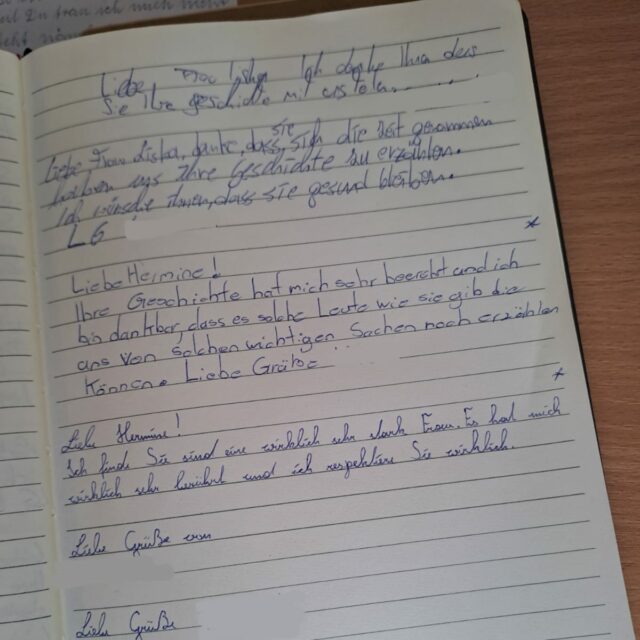 Liebe Frau Ich danke
Sie Ihre geschichte mit uns
sie
Liebe Frau Liska, danke, dass sich die Zeit genommen
haben uns Ihre Geschichte zu erzählen.
Ich wünsche Ihnen, dass sie gesund bleiben.
LG
*
Liebe Hermine!
Ihre Geschichte hat mich sehr und ich
bin dankbar, dass es solche Leute wie sie gib die
uns von solchen wichtigen Sachen noch erzählen
können. Liebe Grüße
*
Liebe Hermine!
Ich finde Sie sind eine wirklich sehr starke Frau. Es hat mich
wirklich sehr berührt und ich respektiere Sie wirklich.
Liebe Grüße von
Liebe Grüße